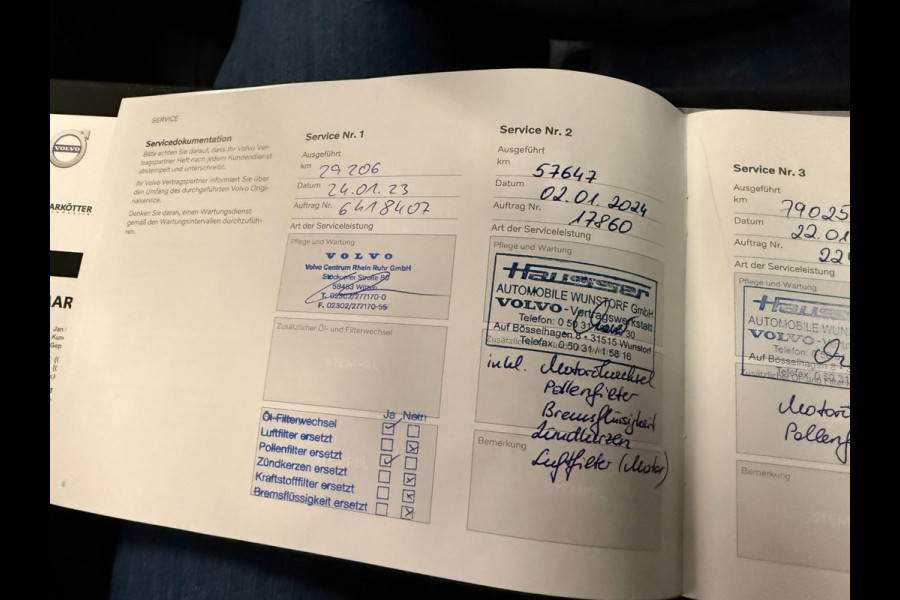 VOLVO
ARKÖTTER
AR
SERVICE
Servicedokumentation
Bitte achten Sie darauf, dass Ihr Volvo Ver-
tragspartner Heft nach jedem Kundendienst
abstempelt und unterschreibt.
Ihr Volvo Vertragspartner informiert Sie über
den Umfang des durchgeführten Volvo Origi-
nalservice.
Denken Sie daran, einen Wartungsdienst
gemäß den Wartungsintervallen durchzufüh-
ren.
6
Service Nr. 1
Ausgeführt
km 29 206
Datum 24.01.23
Auftrag Nr. 6418407
Art der Serviceleistung
Pflege und Wartung
VOLVO
Volvo Centrum Rhein Ruhr GmbH
Stockumer Straße
58453 Witten
T. 02302/277170-0
F. 02302/277170-55
Zusätzlicher Öl- und Filterwechsel
Ja Nein
Öl-Filterwechsel
Luftfilter ersetzt
Pollenfilter ersetzt
Zündkerzen ersetzt
Kraftstofffilter ersetzt
Bremsflüssigkeit ersetzt
Service Nr. 2
Ausgeführt
km 57647
Datum 02.01.2024
Auftrag Nr. 17860
Art der Serviceleistung
Pflege und Wartung
AUTOMOBILE WUNSTORF GmbH
VOLVO - Vertragswerkstatt
Telefon: 0 50 31 30
Auf Bösselhagen 8 • 31515 Wunstorf
Telefax: 0 50 31 / 1 58 16
inkl. Motorölwechsel
Pollenfilter
Bremsflüssigkeit
Zündkerzen
Luftfilter (Motor)
Bemerkung
Service Nr. 3
Ausgeführt
km 79025
Datum 22.01
Auftrag Nr. 22
Art der Serviceleistung
Pflege und Wartung
AUTOMOBILE WUN
VOLVO - Vertra
Telefon:
Auf Bösselhagen 8
Telefax: 0 50 31
Motorö
Pollenf
Bemerkung